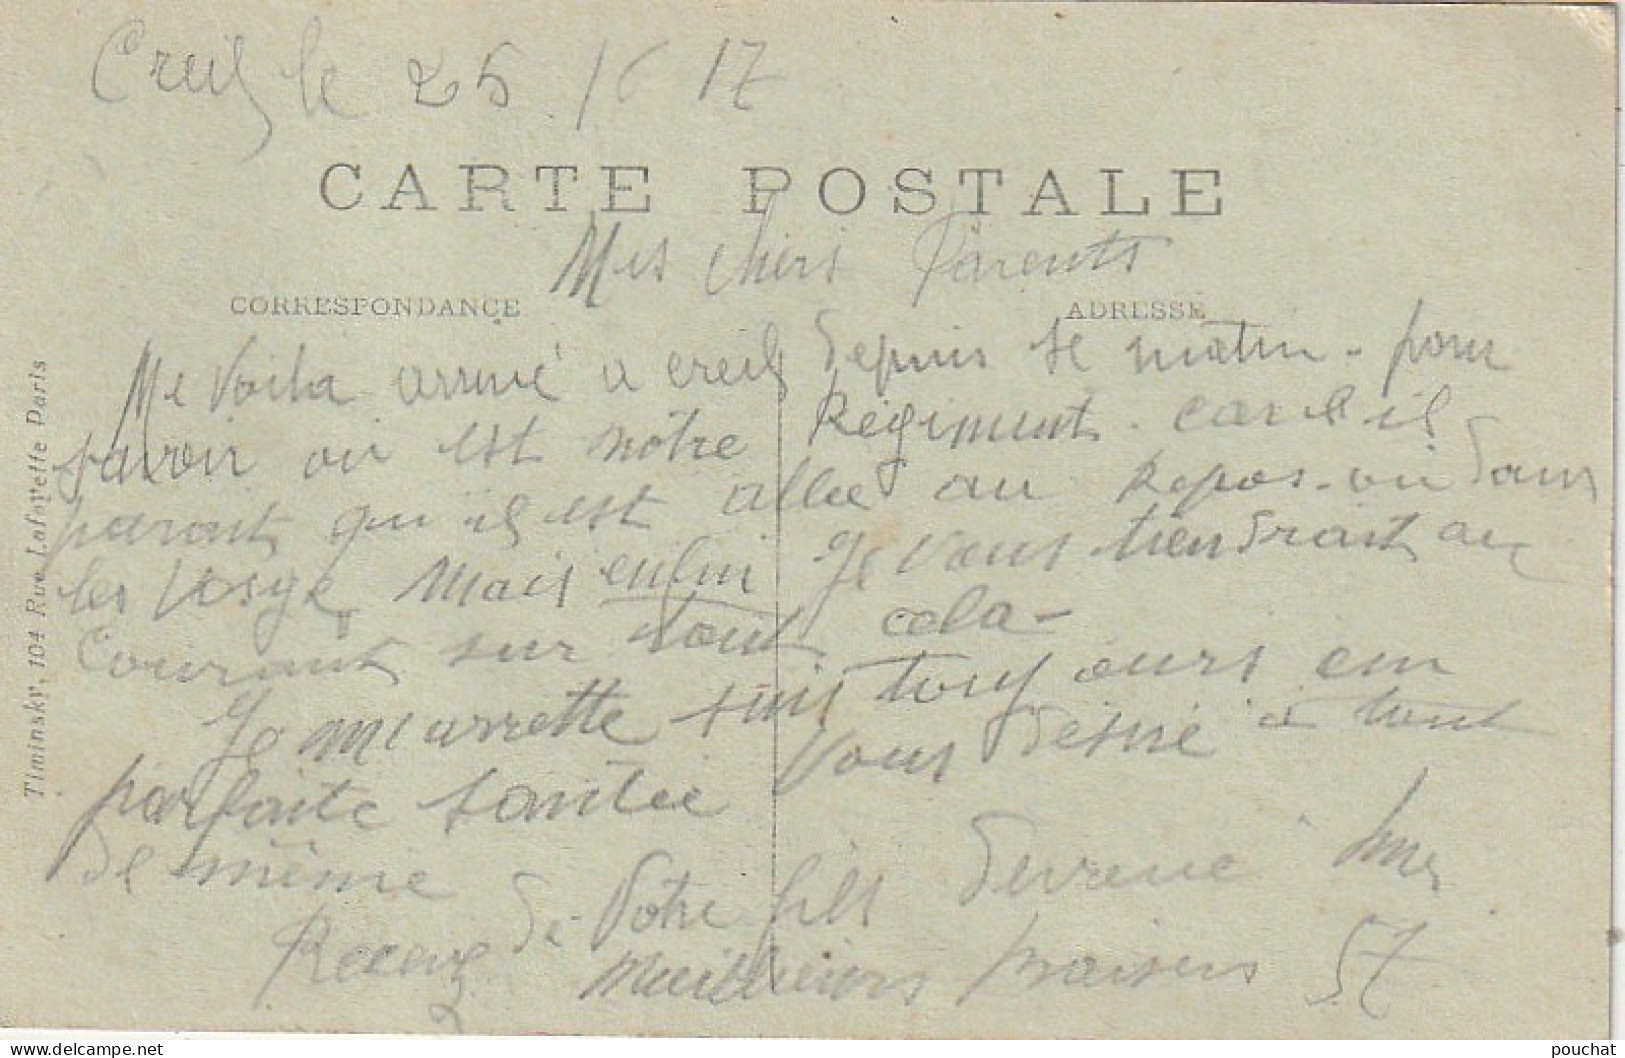 Creil le 25/6 17
CARTE POSTALE
Mes chers Parents
CORRESPONDANCE ADRESSE
Me Voila arrivé a creil depuis se matin - pour
savoir où est notre Régiment. car il
parait qu il est allee au Repos - ou dans
les Vosge Mais enfin Je vous tiendrait au
Courant sur tout cela -
Je m'arrette suis toujours em
parfaite santée Vous désire a tout
de même
Recevez de Votre fils
meilleurs baisers 57
Timinsky, 104 Rue Lafayette Paris
pouchat